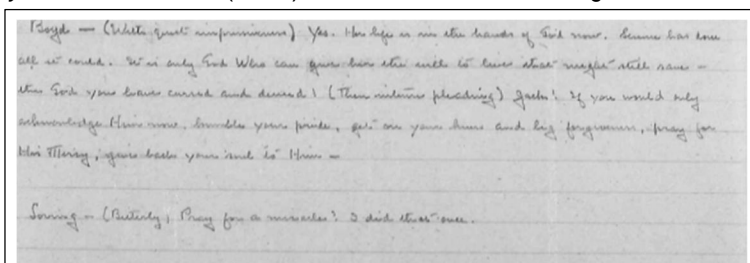 Boyd — (With quiet impressiveness) Yes. Her life is in the hands of God now. Science has done
all it could. It is only God Who can give her the will to live that might still save —
the God you have cursed and denied! (Then intense pleading) Jack! If you would only
acknowledge Him now, humble your pride, get on your knees and beg forgiveness, pray for
His Mercy, give back your soul to Him —
Loving — (Bitterly) Pray for a miracle? I did that once.